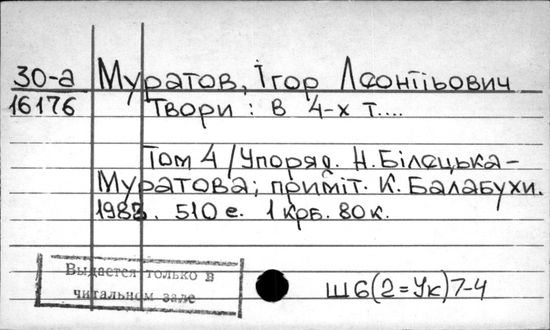 30-а Муратов, Ігор Леонтійович
16176 Твори : в 4-х т....
Том 4 / Упоряд. Н. Білецька-
Муратова; приміт. К. Балабухи.
1983. 510 с. 1 крб. 80 к.
Выдается только в
читальном зале
Ш6(2=Ук)7-4